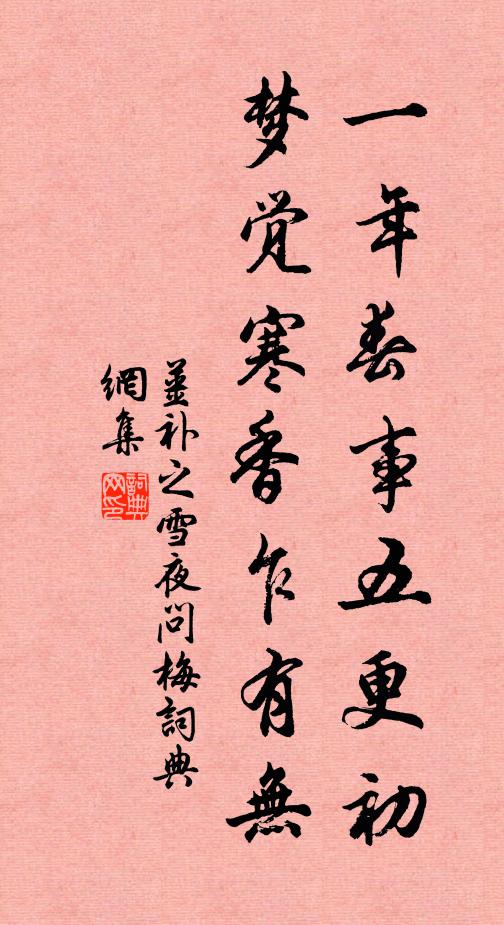 一年春事五更初
梦觉寒香乍有無
薑补之雪夜问梅詞典
網集
詞典
网印